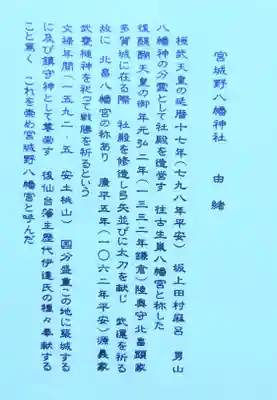 宮城野八幡神社　由緒
桓武天皇の延暦十七年（七九八年平安）　坂上田村麻呂　男山
八幡神の分霊として社殿を造営す　往古生巣八幡宮と称した
後醍醐天皇の御年元弘二年（一三三二年鎌倉）陸奥守北畠顕家
多賀城に在る際　社殿を修造し弓矢並びに太刀を献じ　武運を祈る
故に　北畠八幡宮の称あり　康平五年（一〇六二年平安）源義家
武甕槌神を祀って戦勝を祈るという
文禄年間（一五九二-五　安土桃山）　国分盛重この地に築城する
に及び鎮守神として尊崇す　後仙台藩主歴代伊達氏の種々奉献する
こと篤く　これを崇め宮城野八幡宮と呼んだ